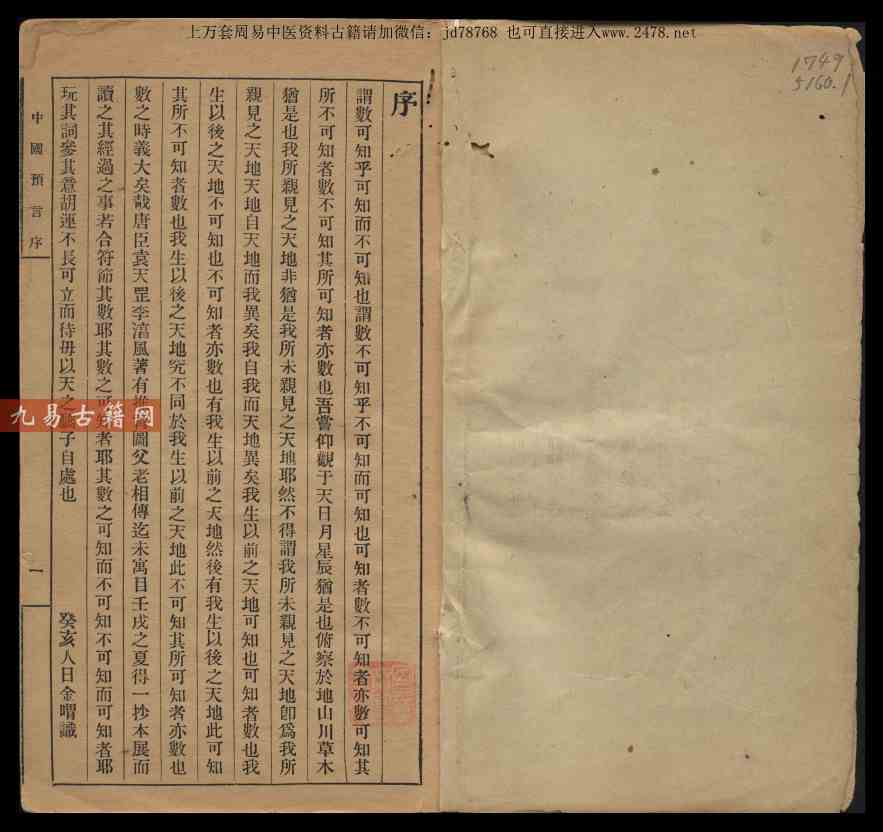 上万套周易中医资料古籍请加微信：jd78768 也可直接进入www.2478.net
1749
5160.1
序
謂數可知乎可知而不可知也謂數不可知乎不可知而可知也可知者數不可知者亦數可知其
所不可知者數不可知其所可知者亦數也吾嘗仰觀于天日月星辰猶是也俯察於地山川草木
猶是也我所親見之天地非猶是我所未親見之天地耶然不得謂我所未親見之天地卽爲我所
親見之天地天地自天地而我異矣我自我而天地異矣我生以前之天地可知也可知者數也我
生以後之天地不可知也不可知者亦數也有我生以前之天地然後有我生以後之天地此可知
其所不可知者數也我生以後之天地究不同於我生以前之天地此不可知其所可知者亦數也
數之時義大矣哉唐臣袁天罡李淳風著有推圖父老相傳迄未寓目壬戌之夏得一抄本展而
讀之其經過之事若合符節其數耶其數之可者耶其數之可知而不可知不可知而可知者耶
玩其詞參其意胡運不長可立而待毋以天之子自處也
癸亥人日金喟識
中國預言序
一
九易古籍网